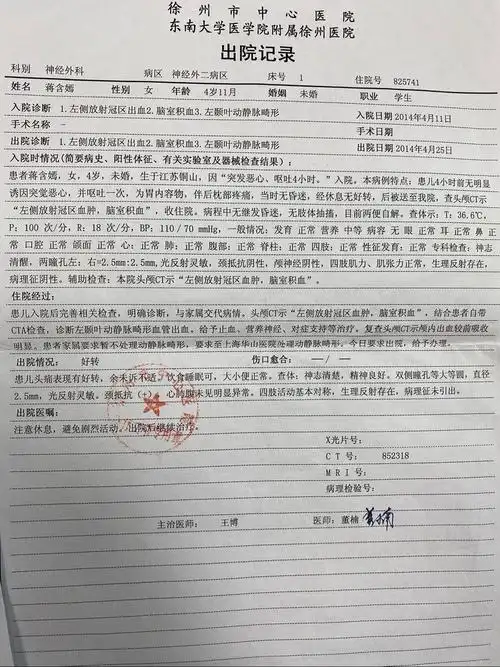 徐州市中心医院
东南大学医学院附属徐州医院
出院记录
科别 神经外科 病区 神经外二病区 床号 1 住院号 825741
姓名 蒋含嫣 性别 女 年龄 4岁11月 婚姻 未婚 职业 学生
入院诊断 1.左侧放射冠区出血2.脑室积血3.左颞叶动静脉畸形 入院日期 2014年4月11日
手术名称 - 手术日期
出院诊断 1.左侧放射冠区出血2.脑室积血3.左颞叶动静脉畸形 出院日期 2014年4月25日
入院时情况(简要病史、阳性体征、有关实验室及器械检查结果):
患者蒋含嫣,女,4岁,未婚,生于江苏铜山,因"突发恶心、呕吐4小时。"入院。本病例特点:患儿4小时前无明显
诱因突觉恶心,并呕吐一次,为胃内容物,伴后枕部疼痛,当时无昏迷,经休息无好转,后被送至我院,查头颅CT示
"左侧放射冠区血肿,脑室积血",收住院。病程中无继发昏迷,无肢体抽搐,目前两便自解。查体示:T:36.6℃,
P:100 次/分,R:18 次/分,BP:110/70 mmHg,一般情况:发育 正常 营养 中等 病容 无 眼 正常 耳 正常 鼻 正
常 口腔 正常 颌面 正常 心:正常 肺:正常 腹部:正常 脊柱:正常 四肢:正常 性征发育:正常 专科检查:神志
清醒,两瞳孔左:右=2.5mm:2.5mm,光反射灵敏,颈抵抗阴性,颅神经阴性,四肢肌力、肌张力正常,生理反射存在,
病理征阴性。辅助检查:本院头颅CT示"左侧放射冠区血肿,脑室积血"。
住院经过:
患儿入院后完善相关检查,明确诊断,与家属交代病情。头颅CT示"左侧放射冠区血肿,脑室积血",结合患者自带
CTA检查,诊断左颞叶动静脉畸形血管出血。给予止血、营养神经、对症支持等治疗。复查头颅CT示颅内出血较前吸收
明显。患者家属要求暂不处理动静脉畸形,要求至上海华山医院处理动静脉畸形。今日要求出院,给予办理。
出院情况: 好转 伤口愈合: —/—
患儿头痛表现有好转,余未诉不适,饮食睡眠可,大小便正常。查体:神志清楚,精神良好。双侧瞳孔等大等圆,直径
2.5mm,光反射灵敏。颈抵抗(+),心肺腹未见明显异常。四肢活动基本对称,生理反射存在,病理征未引出。
出院医嘱:
注意休息,避免剧烈活动。出院后继续治疗。
X光片号:
CT号: 852318
MRI号:
病理检验号:
主治医师: 王博 医师:董楠